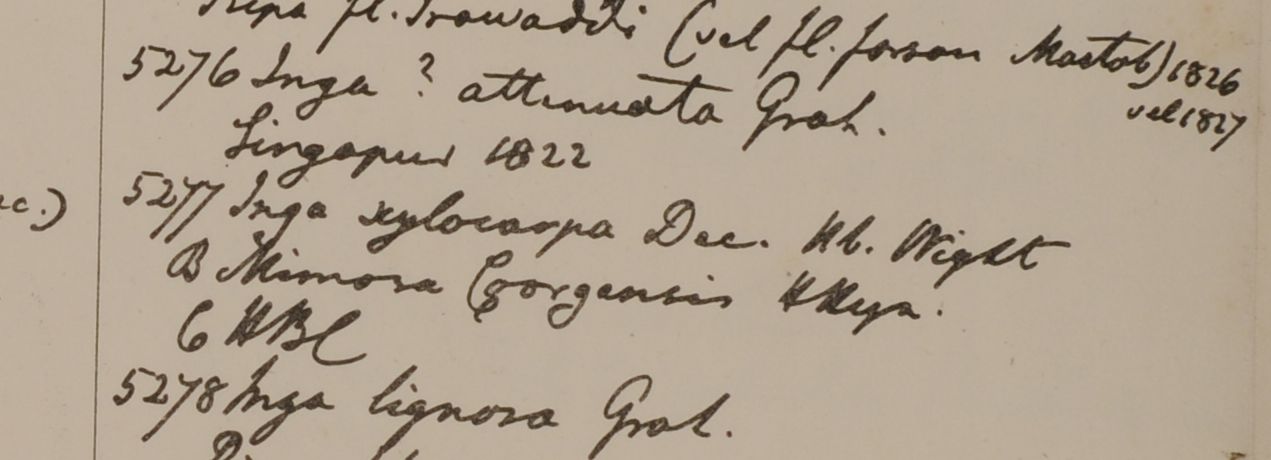 Ripa fl. Irawaddi (vel fl. forsan Martab) 1826
vel 1827
5276 Inga ? attenuata Grah.
Singapur 1822
5277 Inga xylocarpa Dec. Hb. Wight
B Mimosa Goorgensis HHeyn.
C HBC
5278 Inga lignosa Grah.